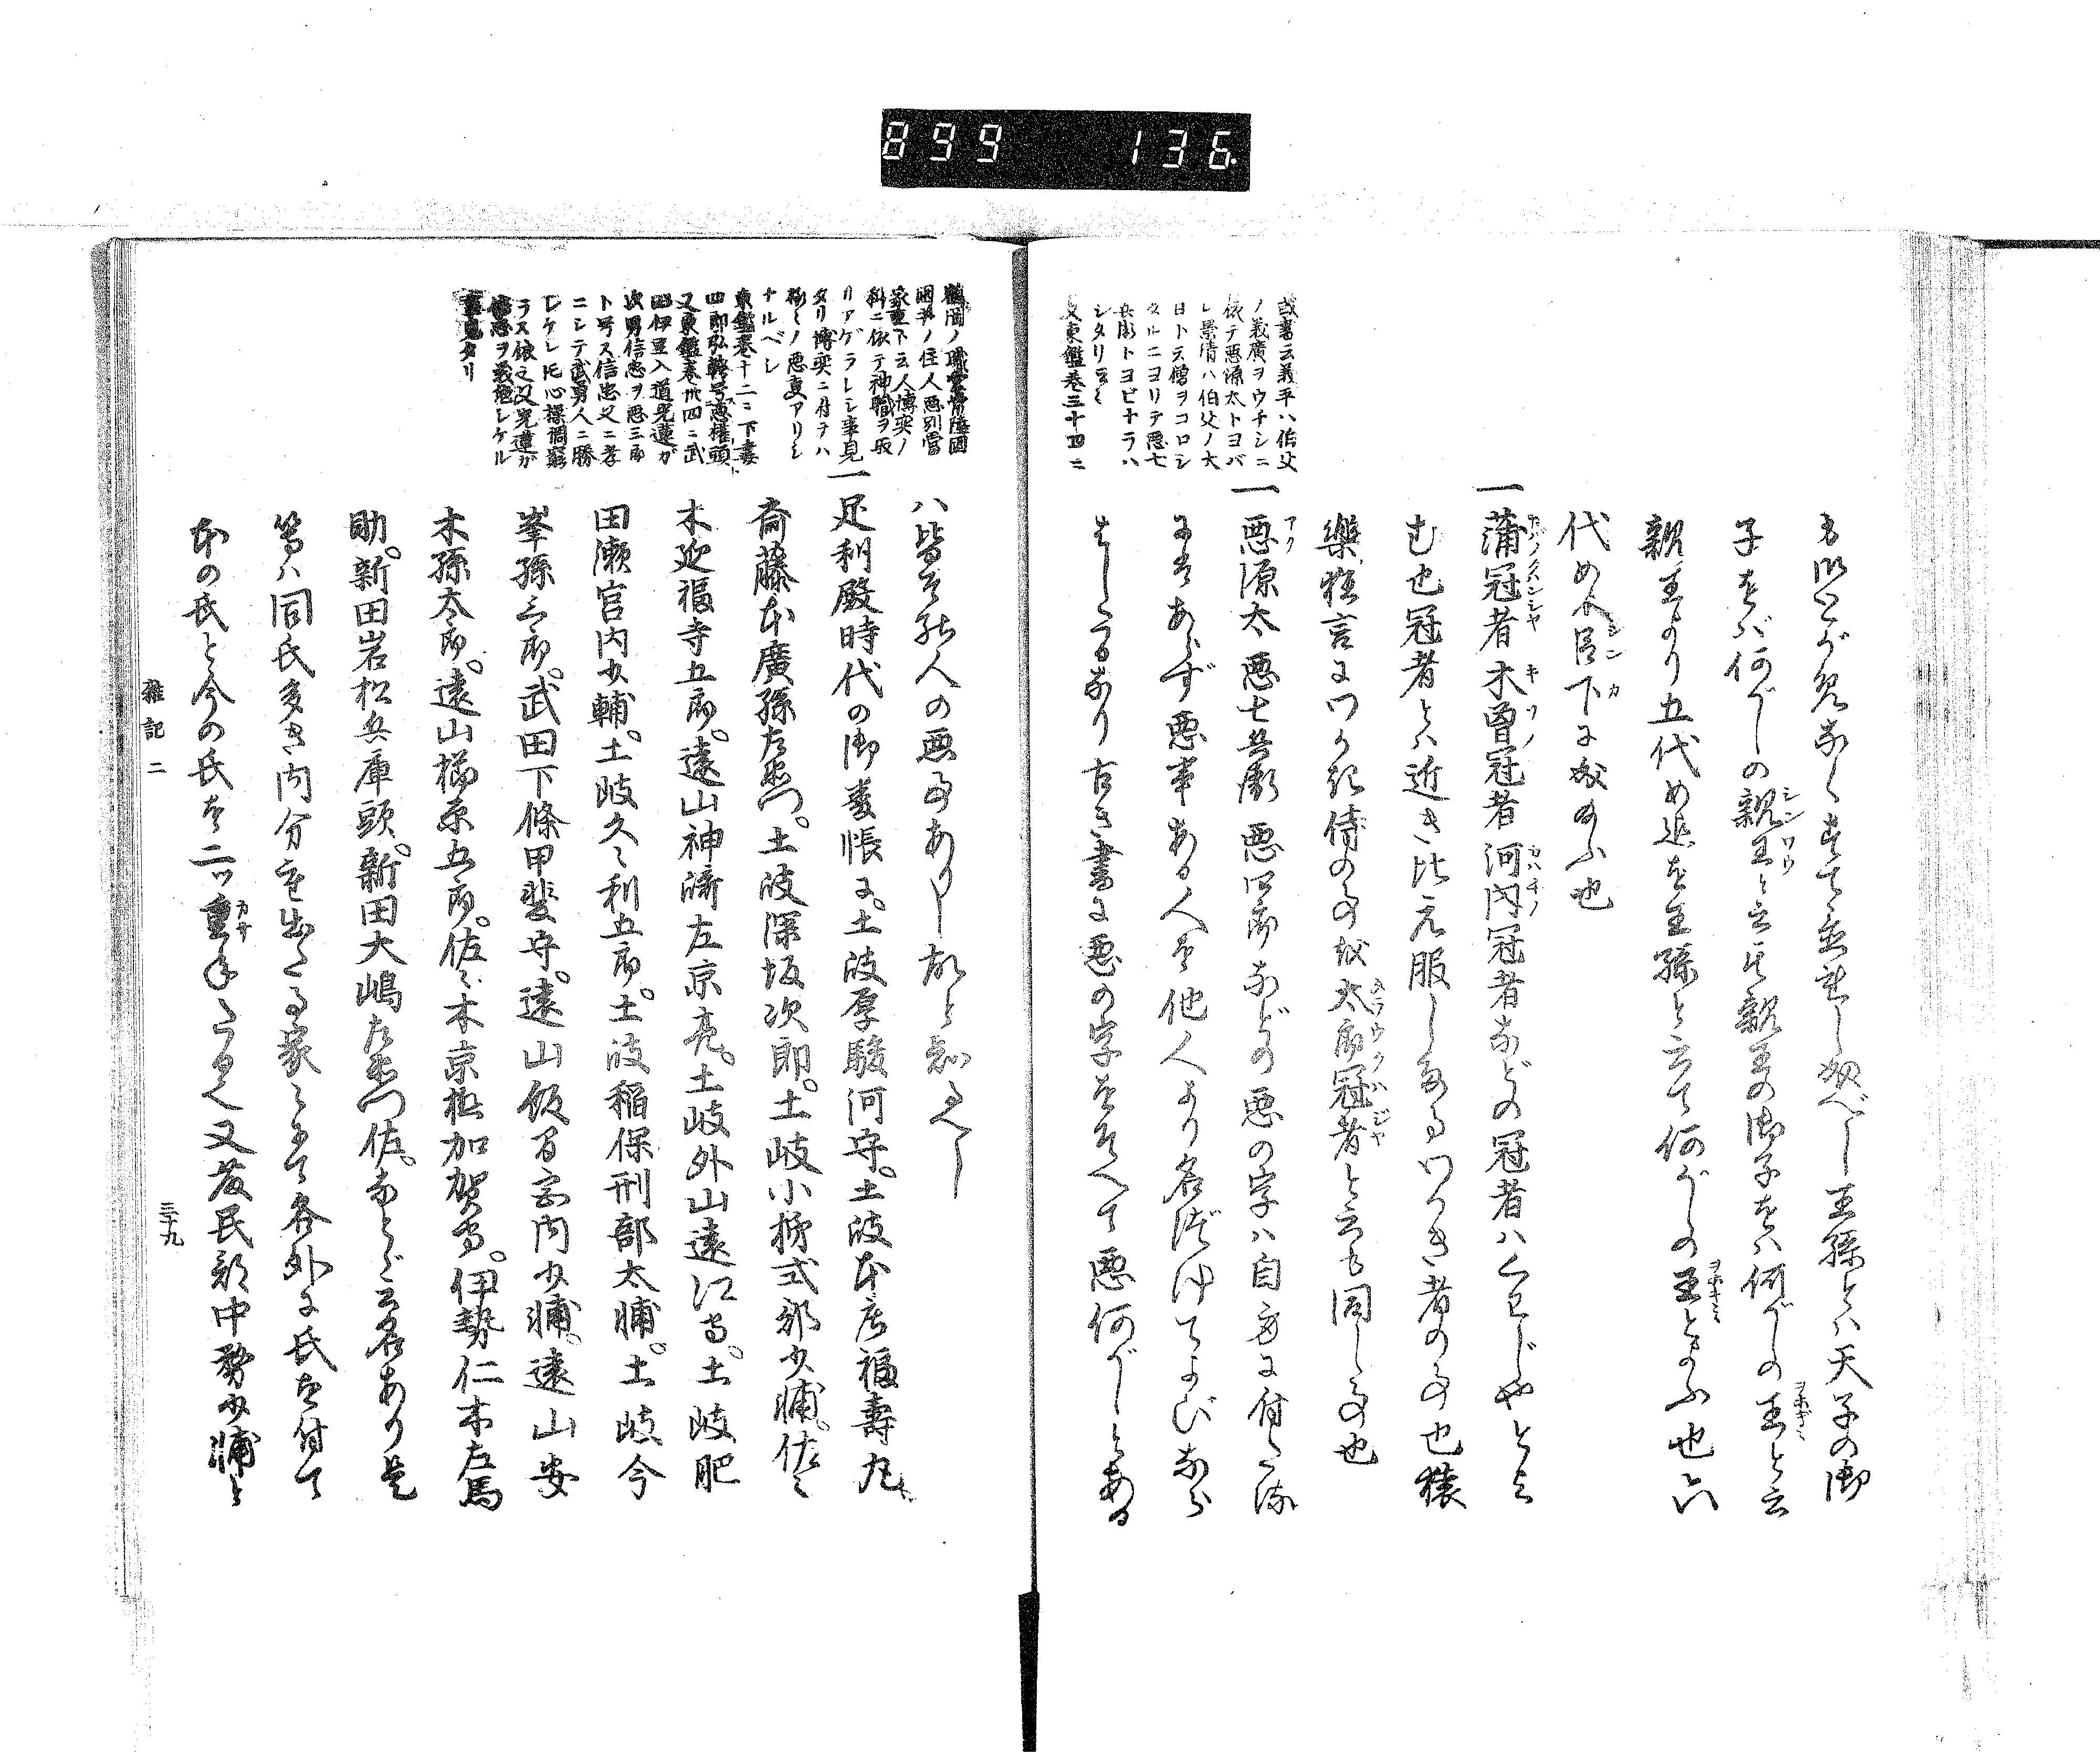 899 136.
或書ニ云義平ハ伯父
ノ義廣ヲウチシニ
依テ悪源太トヨバ
レ景清ハ伯父ノ大
日トテ僧ヲコロシ
タルニヨリテ悪七
兵衛トヨビナラハ
シタリ云々
又東鑑巻三十四ニ
子をバ何がしの親王と云其親王の御子をハ何がしの王と云
親王より五代め迄を王孫と云て何がしの王と云ふ也六
代め人臣下に成給ふ也
一蒲冠者木曽冠者河内冠者などの冠者ハくわじやとよ
む也冠者とハ近き比元服したるわかき者の事也猿
樂狂言にわかき侍の事を太郎冠者と云も同し事也
一悪源太悪七兵衛悪四郎などの悪の字ハ自身に付たる
にはあらず悪事ある人を他人より名づけてよびなら
はしたるなり古き書に悪の字をそへて悪何がしとある
鶴岡ノ職掌常陸國
ノ住人悪別當
家重ト云人博奕ノ
科ニ依テ神職ヲ取
リアゲラレシ事見
タリ博奕ニ付テハ
様々ノ悪事アリシ
ナルベシ
東鑑巻十二ニ下妻
四郎弘幹号悪権頭ト
又東鑑巻卅四ニ武
田伊豆入道光蓮ガ
次男信忠ヲ悪三郎
ト号ス信忠父ニ孝
ニシテ武勇人ニ勝
レケレ圧心操調
ラス依之父光蓮ガ
信忠ヲ義絶シケル
事見タリ
ハ皆其人の悪事ありし故と知るべし
一足利殿時代の御番帳に。土岐厚駿河守。土岐本庄福壽丸。
斎藤本廣孫左衛門。土岐深坂次郎。土岐小柿式部少輔。佐々
木延福寺五郎。遠山神野左京亮。土岐外山遠江守。土岐肥
田瀬宮内少輔。土岐久々利五郎。土岐稲保刑部太輔。土岐今
峯孫三郎。武田下條甲斐守。遠山飯間宮内少輔。遠山安
木孫太郎。遠山櫛原五郎。佐々木京極加賀守。伊勢仁木左馬
助。新田岩松兵庫頭。新田大嶋左衛門佐。などゝ云名あり是
等ハ同氏多き内分れ出たる家々にて各外に氏を付て
本の氏と今の氏を二ッ重ねたる也又苗民部中務少輔と
雜記二
三十九